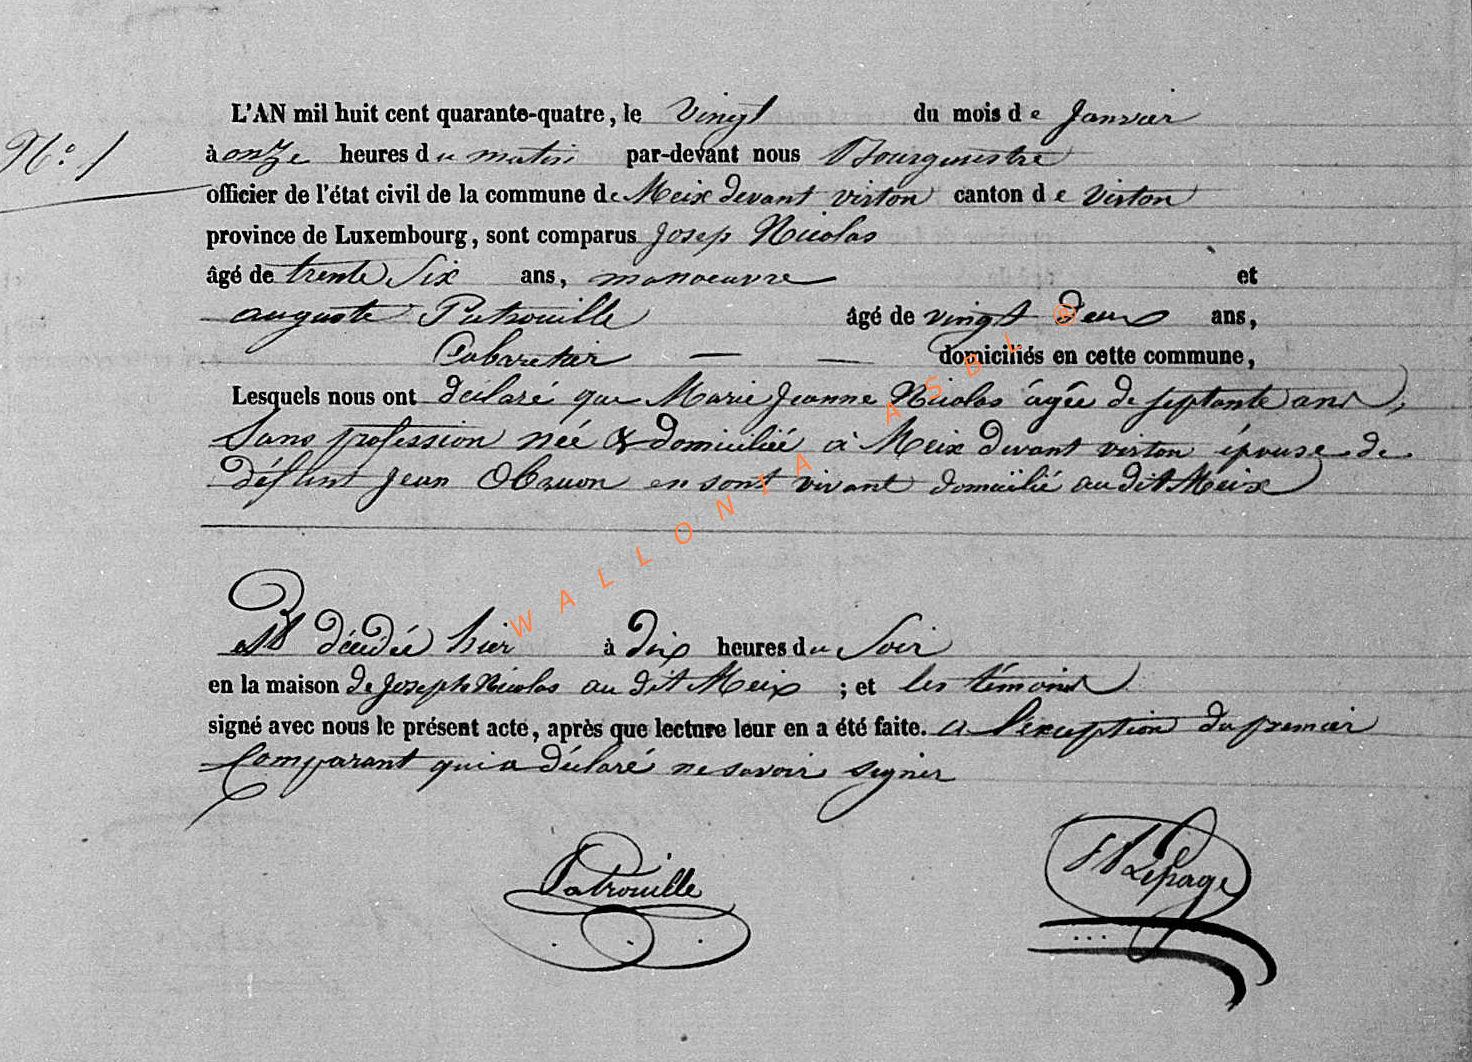 N.° 1
L'AN mil huit cent quarante-quatre, le vingt du mois de Janvier
à onze heures du matin par-devant nous Bourgmestre
officier de l'état civil de la commune de Meix devant virton canton de Virton
province de Luxembourg, sont comparus Josep Nicolas
âgé de trente Six ans, manoeuvre et
auguste Patrouille âgé de vingt deux ans,
Cabaretier — — domiciliés en cette commune,
Lesquels nous ont déclaré que Marie Jeanne Nicolas âgée de septante ans,
Sans profession née & domiciliée à Meix devant virton épouse de
défunt Jean en sont vivant domicilié au dit Meix
est décédée hier à dix heures du Soir
en la maison de Joseph Nicolas au dit Meix ; et les témoins
signé avec nous le présent acte, après que lecture leur en a été faite. a l'exception du premier
Comparant qui a déclaré ne savoir signer
Patrouille
Lepage
@ WALLONIA ASBL